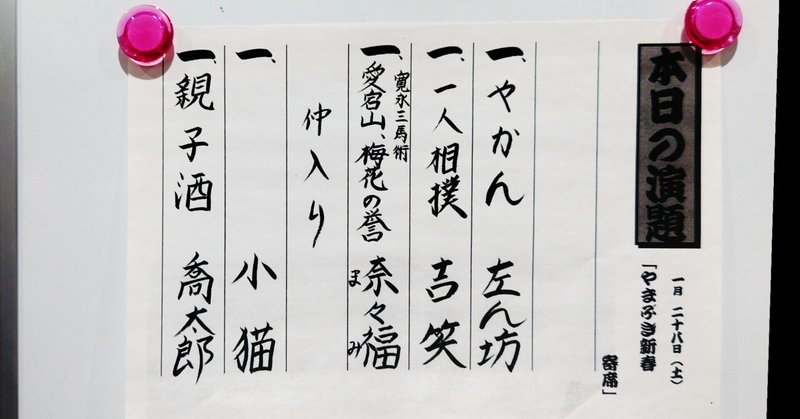 本日の演題
一月 二十八日(土)
「やまぶき新春
寄席」
一、やかん 左ん坊
一、一人相撲 吉笑
寛永三馬術
一、愛宕山、梅花の誉 奈々福
まみ
仲入り
一、 小猫
一、親子酒 喬太郎